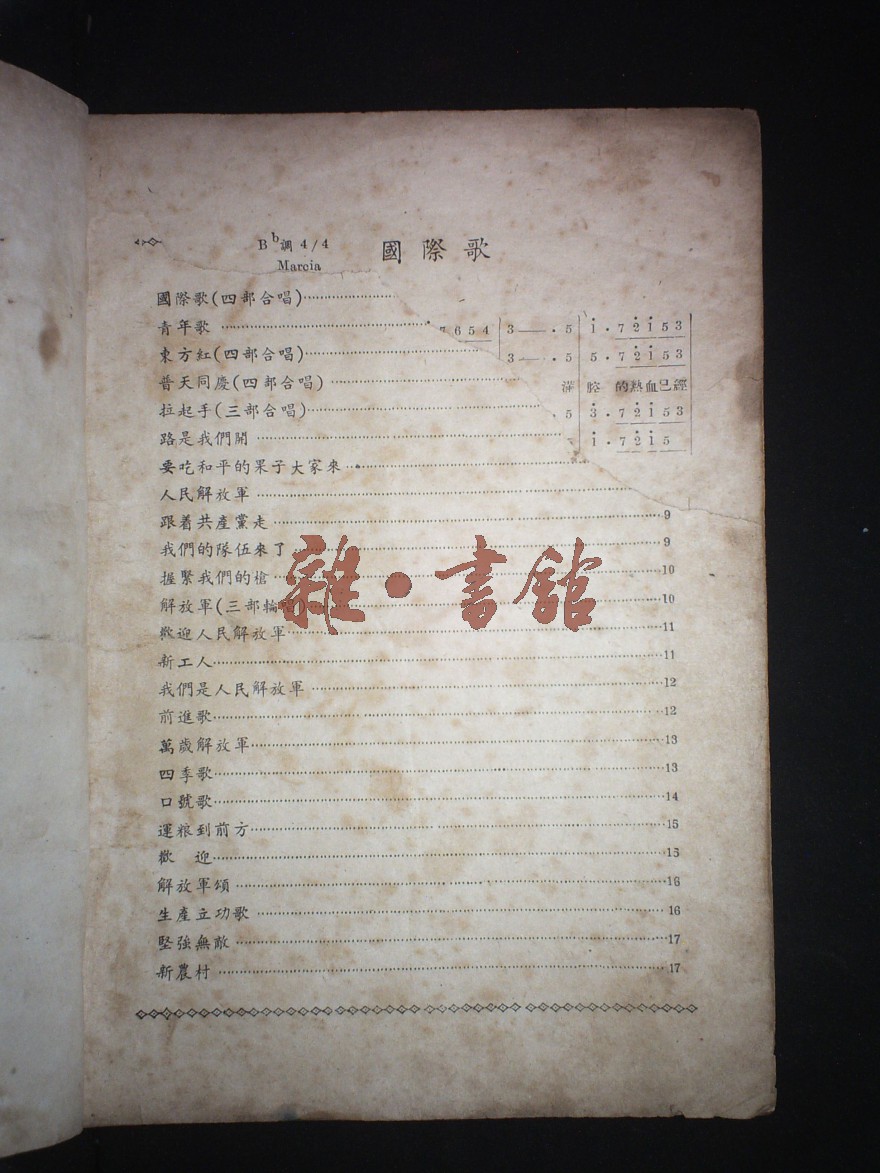 B♭調 4/4 國際歌
Marcia
國際歌(四部合唱)
青年歌
7 6 5 4 | 3 — · 5 | 1 · 7 2 1 5 3
東方紅(四部合唱)
3 — · 5 | 5 · 7 2 1 5 3
普天同慶(四部合唱)
滿 腔 的熱血已經
拉起手(三部合唱)
· 5 | 3 · 7 2 1 5 3
路是我們開
1 · 7 2 1 5
要吃和平的果子大家來
人民解放軍
跟着共產黨走 9
我們的隊伍來了 9
握緊我們的槍 10
解放軍(三部輪唱) 10
歡迎人民解放軍 11
新工人 11
我們是人民解放軍 12
前進歌 12
萬歲解放軍 13
四季歌 13
口號歌 14
運粮到前方 15
歡 迎 15
解放軍頌 16
生產立功歌 16
堅強無敵 17
新農村 17
雜·書館